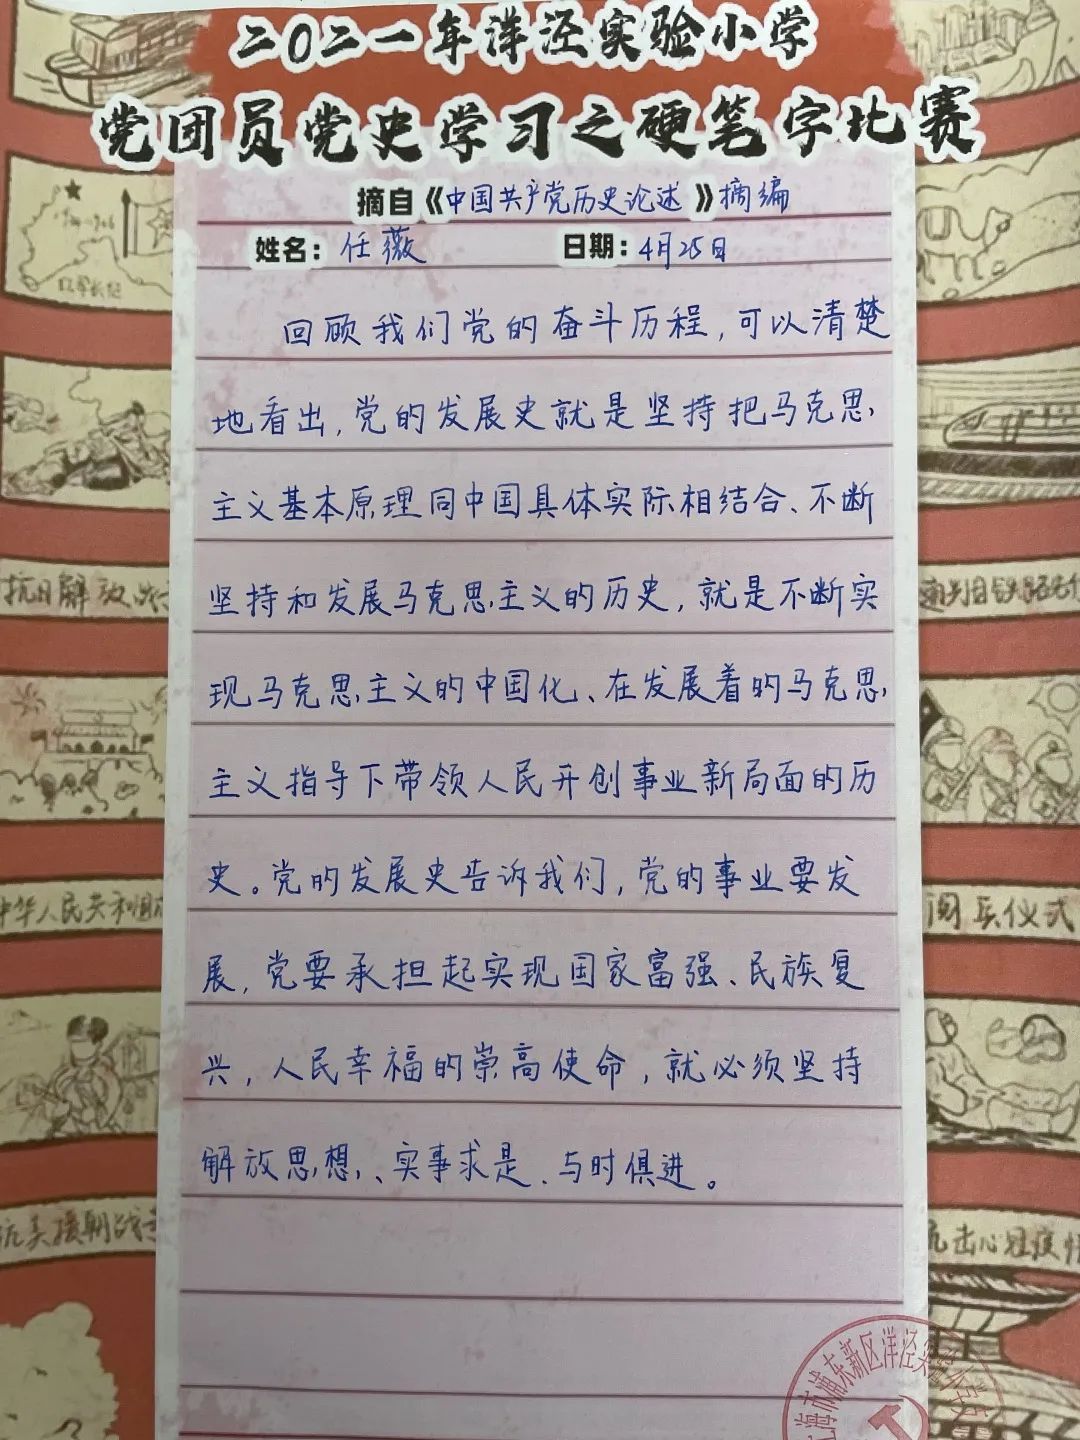 二〇二一年洋泾实验小学
党团员党史学习之硬笔字比赛
摘自《中国共产党历史论述》摘编
姓名：任薇 日期：4月25日
回顾我们党的奋斗历程，可以清楚
地看出，党的发展史就是坚持把马克思
主义基本原理同中国具体实际相结合、不断
坚持和发展马克思主义的历史，就是不断实
现马克思主义的中国化、在发展着的马克思
主义指导下带领人民开创事业新局面的历
史。党的发展史告诉我们，党的事业要发
展，党要承担起实现国家富强、民族复
兴，人民幸福的崇高使命，就必须坚持
解放思想、实事求是、与时俱进。
抗日解放战
中华人民共和国成
阅兵仪式
抗美援朝战
抗击心冠疫情
海市浦东新区洋泾实验小学